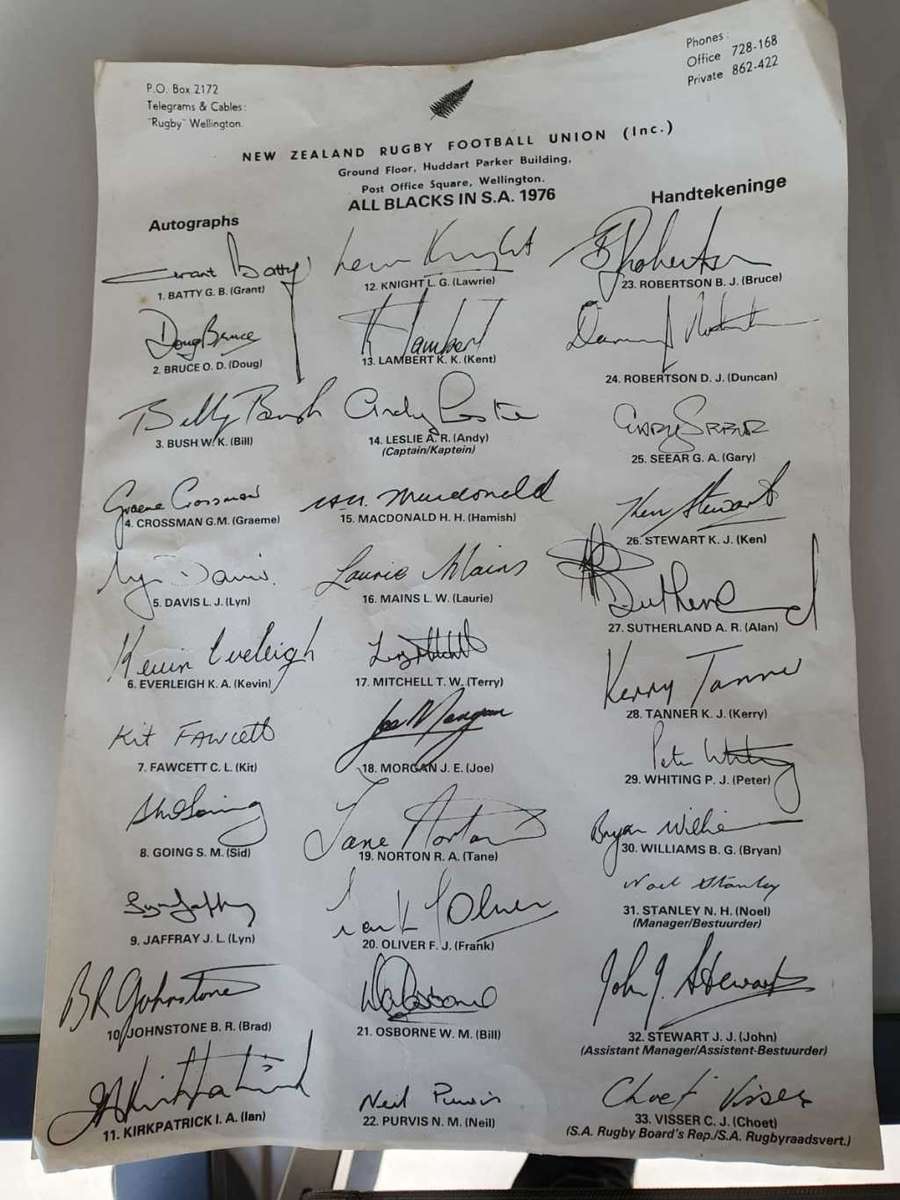 P.O. Box 2172
Telegrams & Cables:
"Rugby" Wellington.
Phones:
Office 728-168
Private 862-422
NEW ZEALAND RUGBY FOOTBALL UNION (Inc.)
Ground Floor, Huddart Parker Building,
Post Office Square, Wellington.
ALL BLACKS IN S.A. 1976
Autographs
Handtekeninge
Grant Batty
1. BATTY G. B. (Grant)
Doug Bruce
2. BRUCE O. D. (Doug)
Billy Bush
3. BUSH W. K. (Bill)
Graeme Crossman
4. CROSSMAN G.M. (Graeme)
Lyn Davis
5. DAVIS L. J. (Lyn)
Kevin Eveleigh
6. EVERLEIGH K. A. (Kevin)
Kit Fawcett
7. FAWCETT C. L. (Kit)
Sid Going
8. GOING S. M. (Sid)
Lyn Jaffray
9. JAFFRAY J. L. (Lyn)
BR Johnstone
10. JOHNSTONE B. R. (Brad)
IA Kirkpatrick
11. KIRKPATRICK I. A. (Ian)
Knight
12. KNIGHT L. G. (Lawrie)
K Lambert
13. LAMBERT K. K. (Kent)
Andy Leslie
14. LESLIE A. R. (Andy)
(Captain/Kaptein)
Macdonald
15. MACDONALD H. H. (Hamish)
Laurie Mains
16. MAINS L. W. (Laurie)
17. MITCHELL T. W. (Terry)
Joe Morgan
18. MORGAN J. E. (Joe)
Tane Norton
19. NORTON R. A. (Tane)
Frank Oliver
20. OLIVER F. J. (Frank)
Osborne
21. OSBORNE W. M. (Bill)
Neil Purvis
22. PURVIS N. M. (Neil)
B Robertson
23. ROBERTSON B. J. (Bruce)
24. ROBERTSON D. J. (Duncan)
Gary Seear
25. SEEAR G. A. (Gary)
Ken Stewart
26. STEWART K. J. (Ken)
Sutherland
27. SUTHERLAND A. R. (Alan)
Kerry Tanner
28. TANNER K. J. (Kerry)
Pete Whiting
29. WHITING P. J. (Peter)
Bryan Williams
30. WILLIAMS B. G. (Bryan)
Noel Stanley
31. STANLEY N. H. (Noel)
(Manager/Bestuurder)
John J. Stewart
32. STEWART J. J. (John)
(Assistant Manager/Assistent-Bestuurder)
Choet Visser
33. VISSER C. J. (Choet)
(S.A. Rugby Board's Rep./S.A. Rugbyraadsvert.)